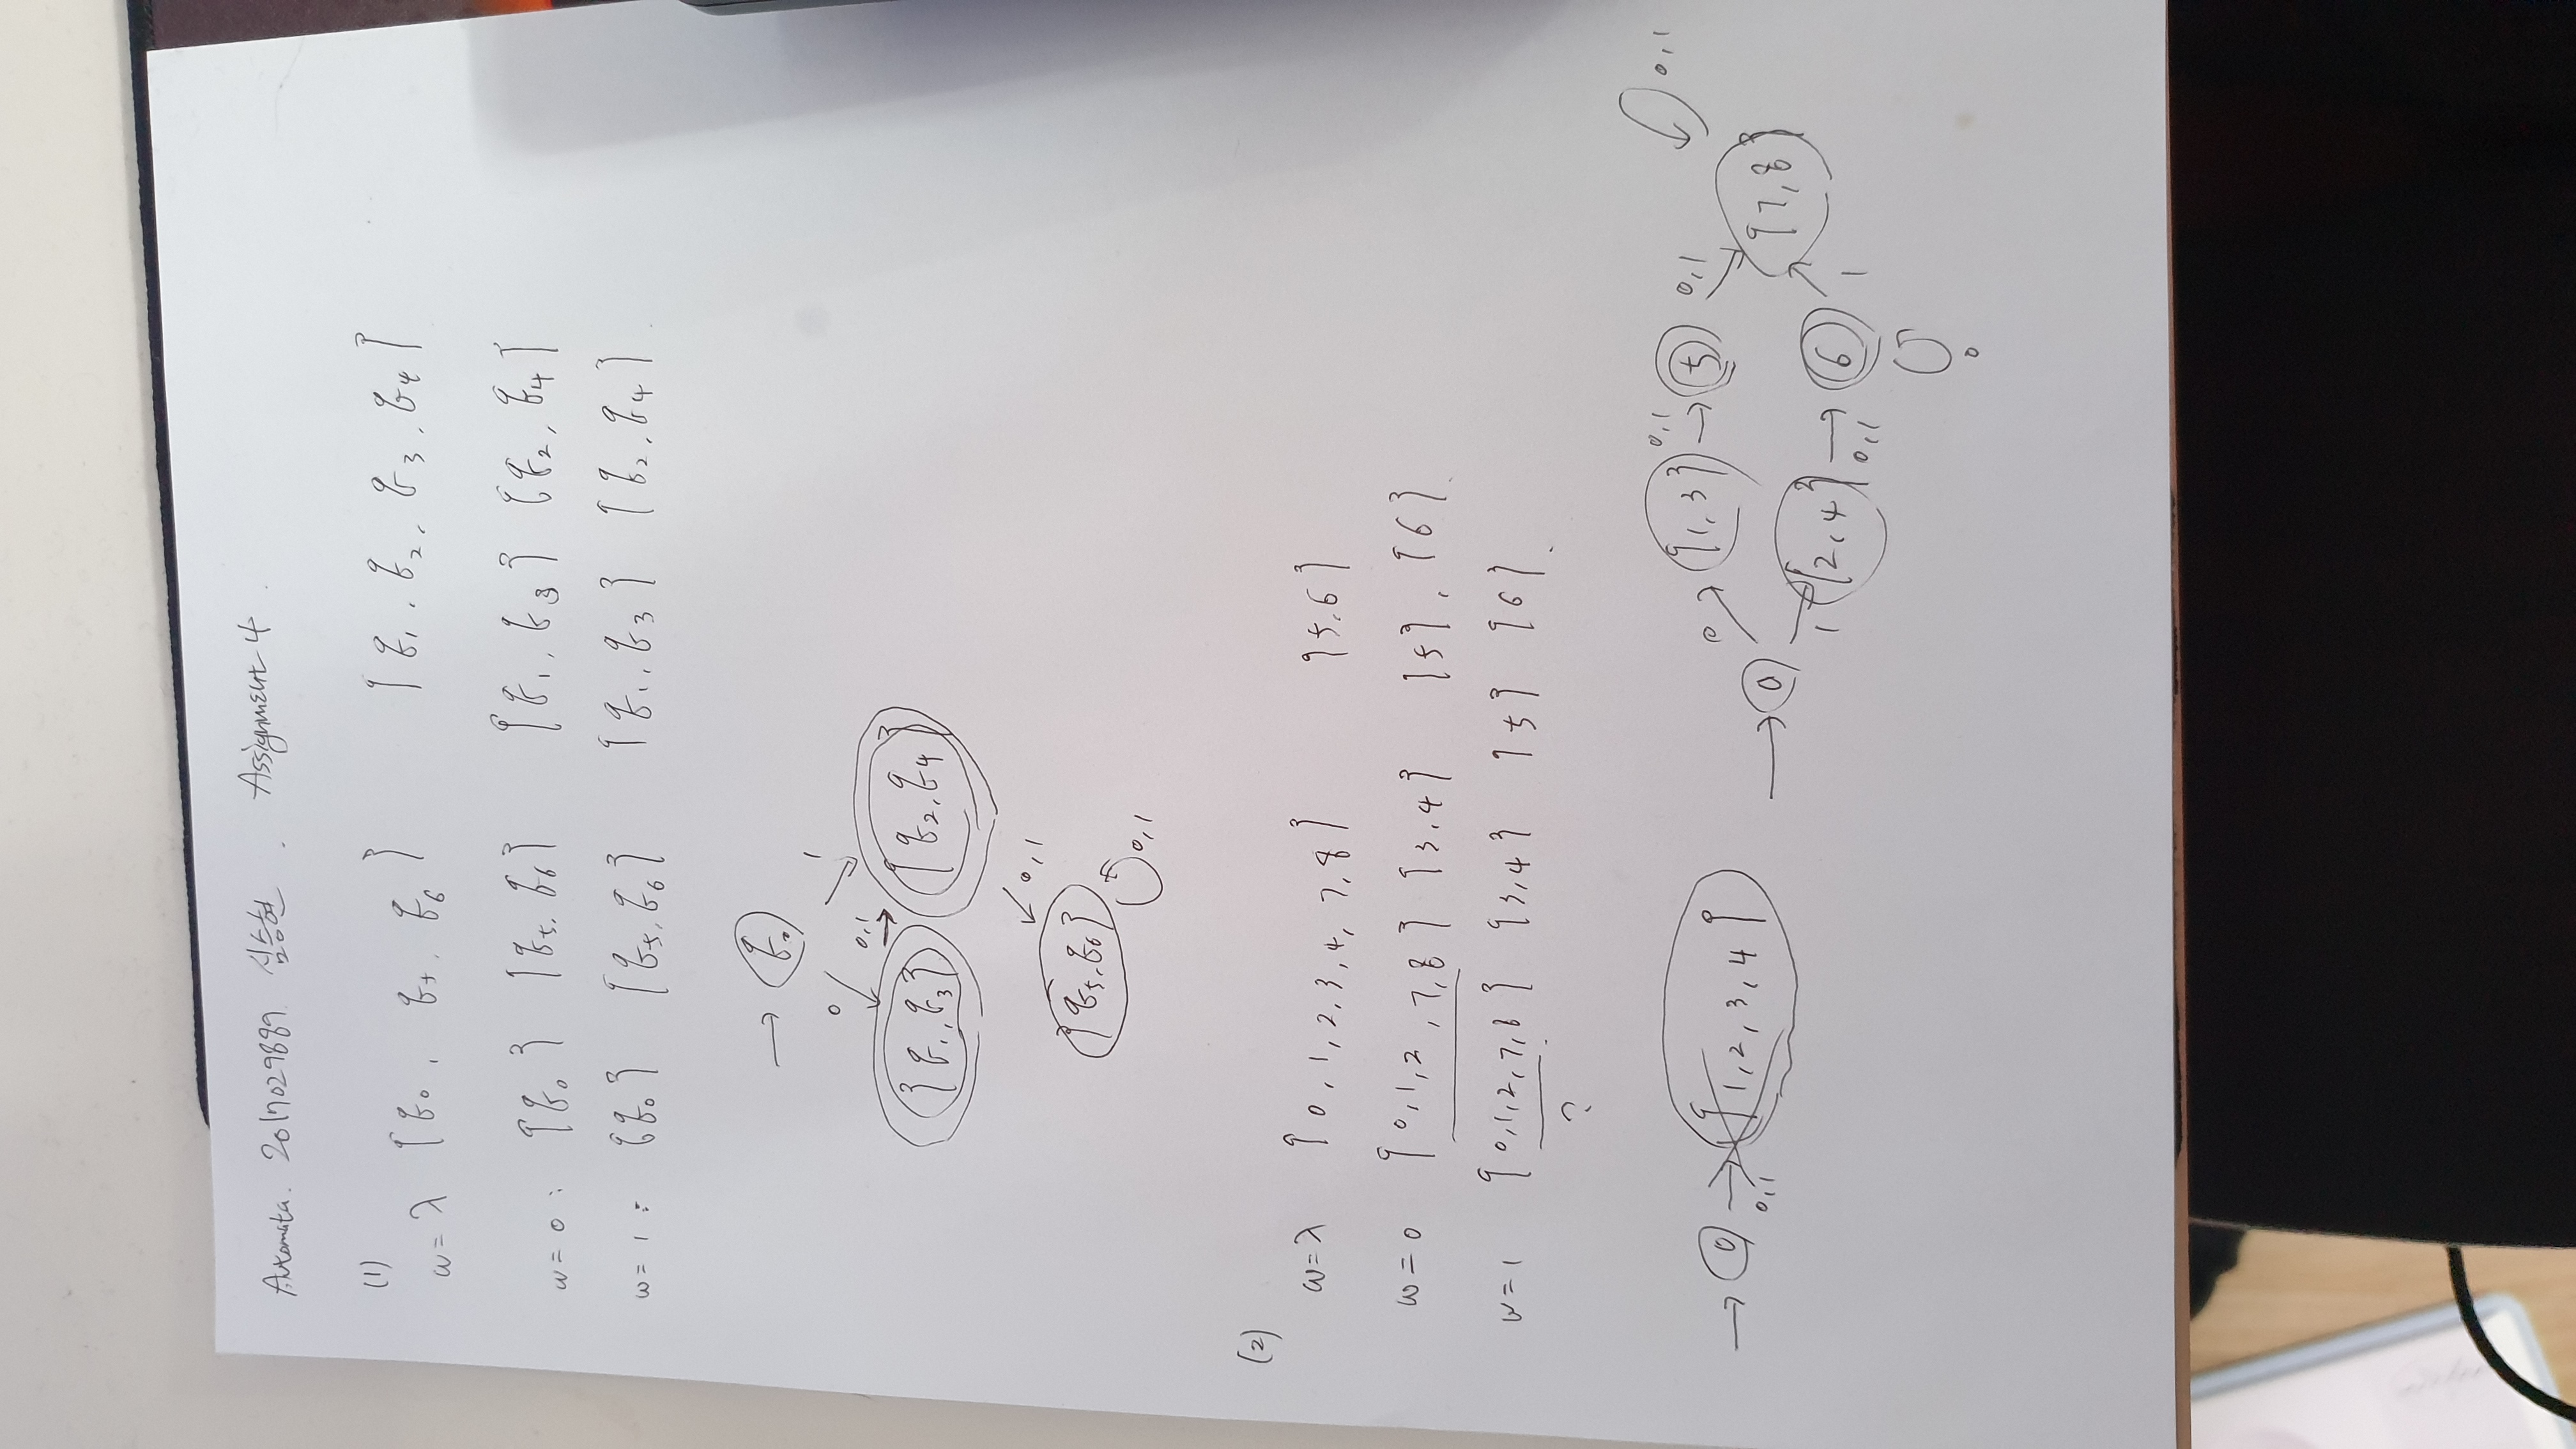 Automata. 2017029889 심승현 . Assignment 4 .
(1)
w = λ {q0 , q5 , q6 } {q1 , q2 , q3 , q4 }
w = 0 : {q0 } {q5, q6} {q1, q3 } {q2, q4}
w = 1 : {q0} {q5, q6} {q1, q3} {q2, q4} .
q0
0 1
0,1
{q1, q3} {q2, q4}
0,1
{q5, q6}
0,1
(2)
w=λ {0 , 1, 2, 3, 4, 7, 8 } {5, 6}
w = 0 {0,1,2 ,7,8} {3, 4} {5} , {6}.
w = 1 {0,1,2,7,8 } {3,4} {5} {6} .
?
0 0,1 {1,2,3,4}
0 0 {1,3} 0,1 5 0,1 {7,8} 0,1
1 {2,4} 0,1 6 1
0